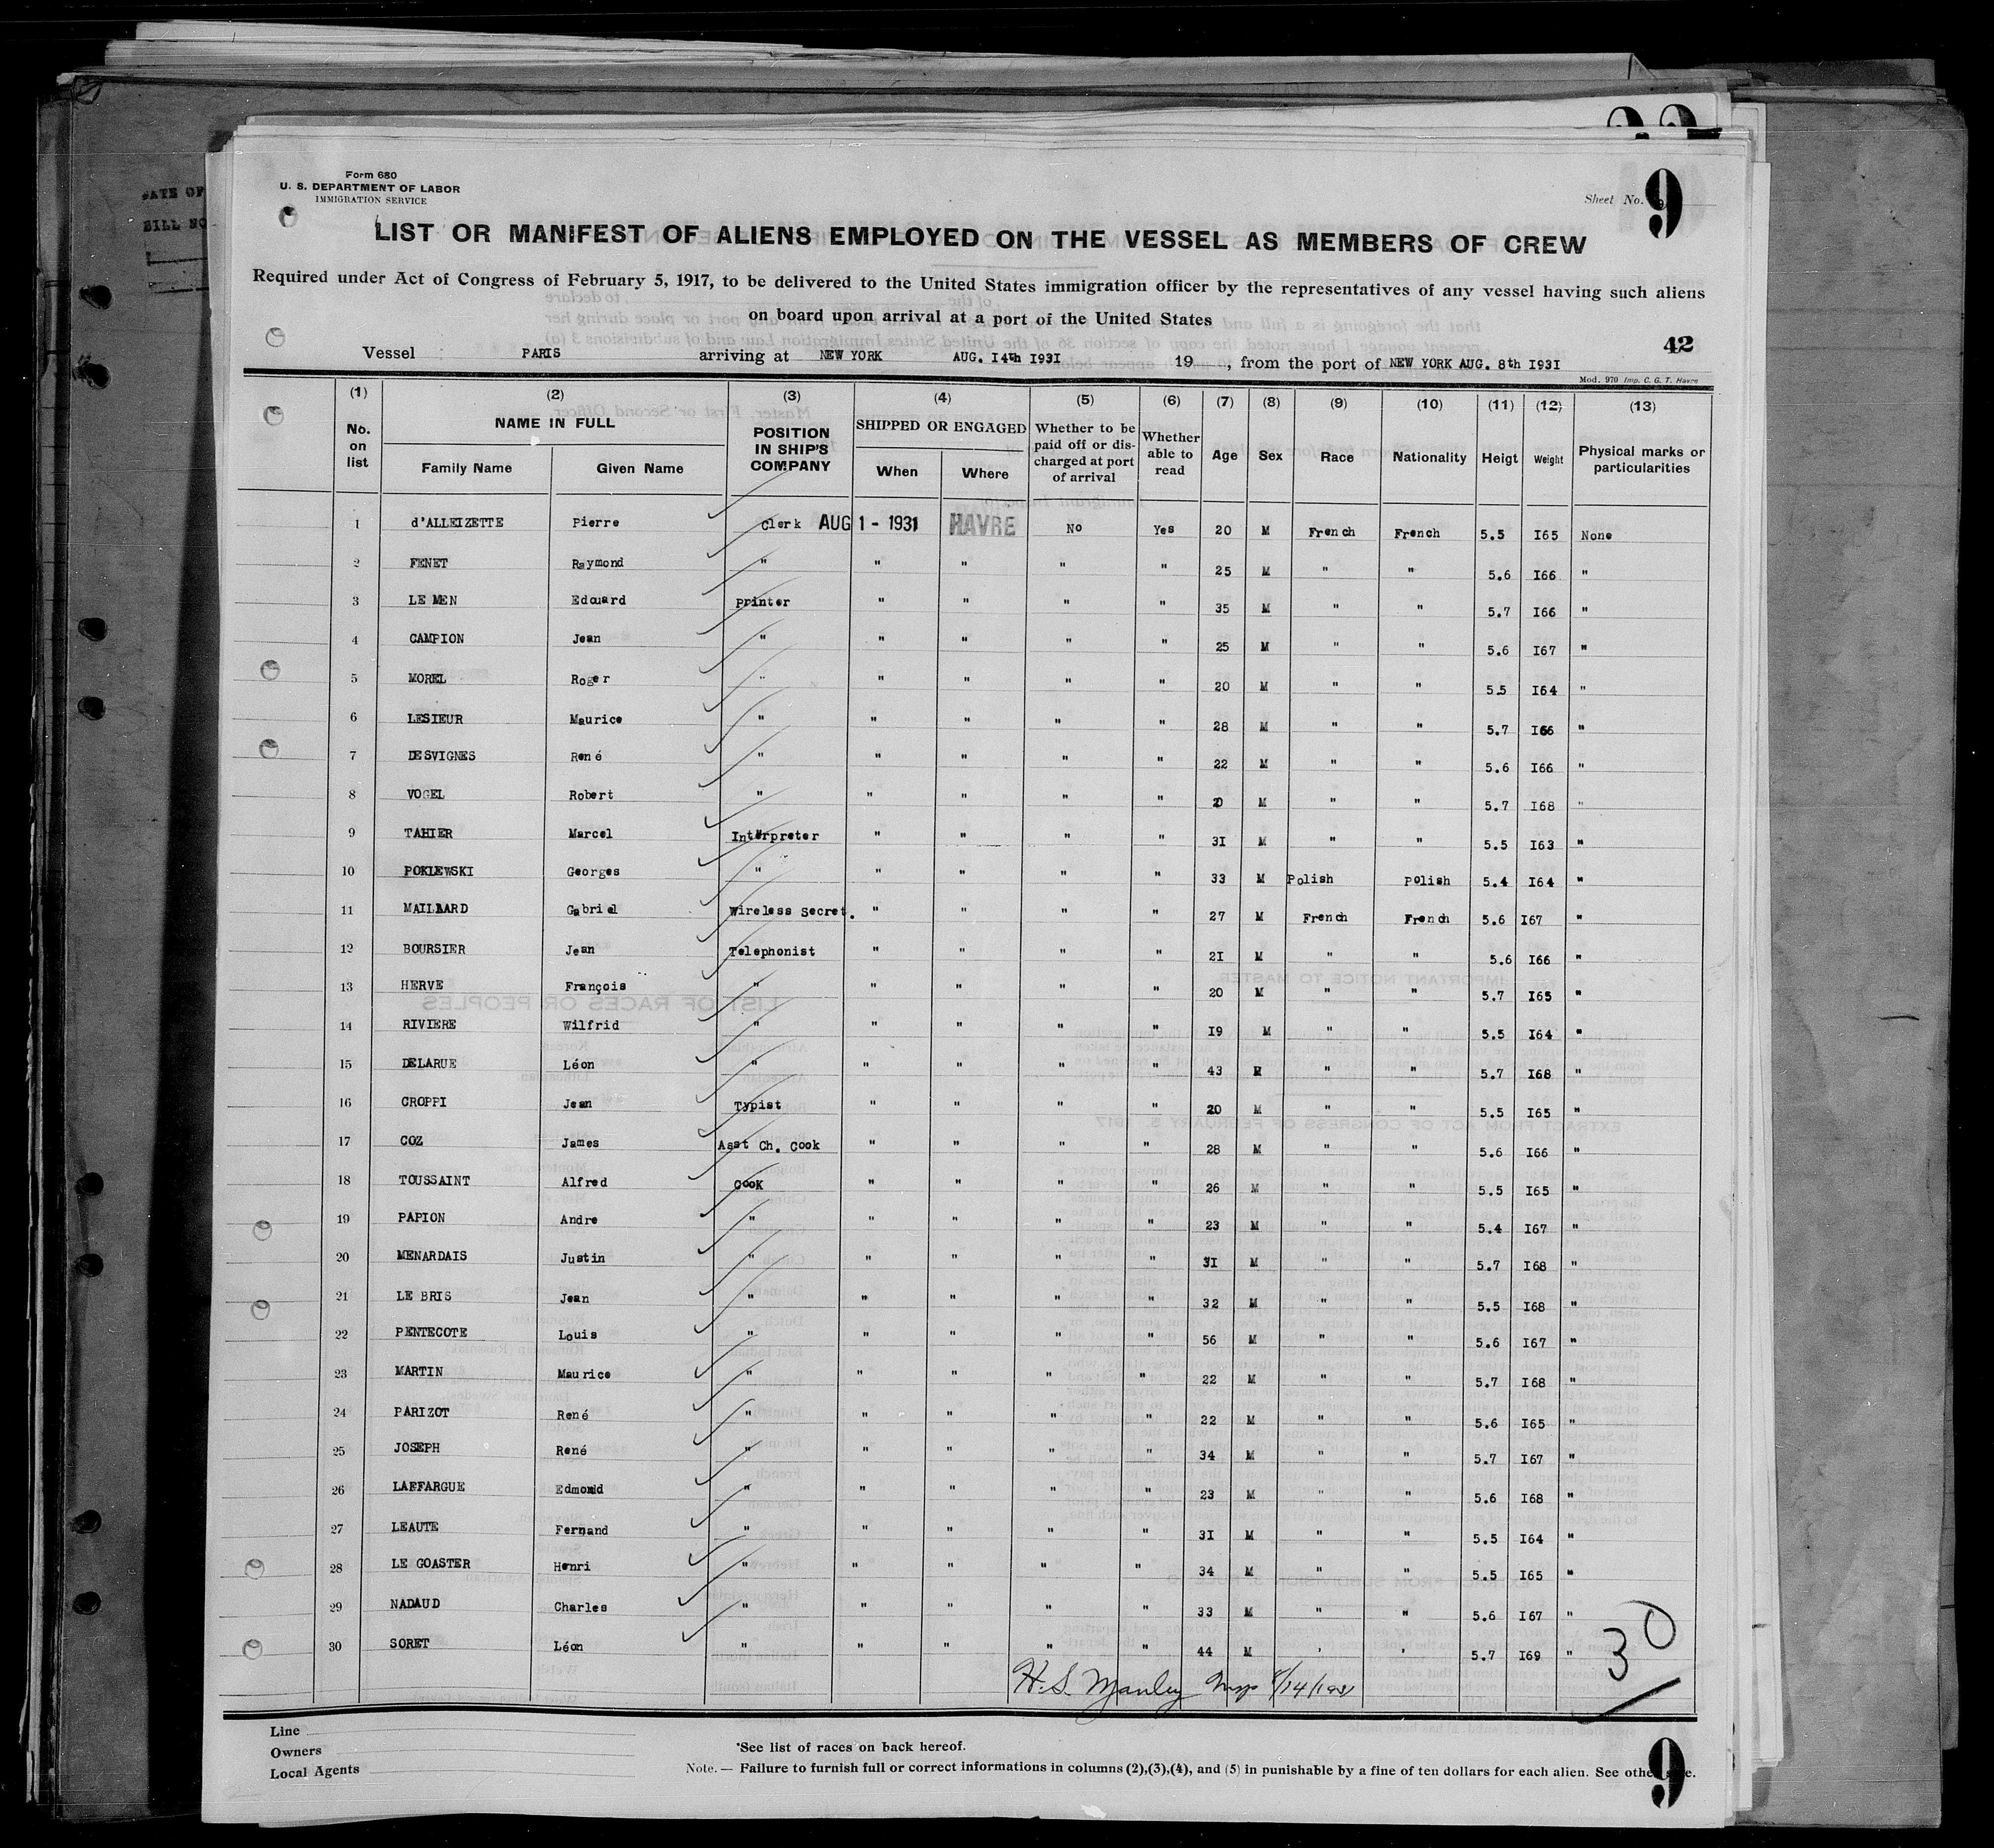 ATE OF
BILL NO
Form 680
U. S. DEPARTMENT OF LABOR
IMMIGRATION SERVICE
Sheet No. 9
LIST OR MANIFEST OF ALIENS EMPLOYED ON THE VESSEL AS MEMBERS OF CREW
Required under Act of Congress of February 5, 1917, to be delivered to the United States immigration officer by the representatives of any vessel having such aliens
on board upon arrival at a port of the United States
42
Vessel PARIS arriving at NEW YORK AUG. I4th I93I 19 , from the port of NEW YORK AUG. 8th I93I
Mod. 970 Imp. C. G. T. Havre
(1) (2) (3) (4) (5) (6) (7) (8) (9) (10) (11) (12) (13)
No. on list NAME IN FULL Family Name Given Name POSITION IN SHIP'S COMPANY SHIPPED OR ENGAGED When Where Whether to be paid off or discharged at port of arrival Whether able to read Age Sex Race Nationality Heigt Weight Physical marks or particularities
1 d'ALLEIZETTE Pierre Clerk AUG 1 - 1931 HAVRE No Yes 20 M French French 5.5 I65 None
2 FENET Raymond " " " " " 25 M " " 5.6 I66 "
3 LE MEN Edouard Printer " " " " 35 M " " 5.7 I66 "
4 CAMPION Jean " " " " " 25 M " " 5.6 I67 "
5 MOREL Roger " " " " " 20 M " " 5.5 I64 "
6 LESIEUR Maurice " " " " " 28 M " " 5.7 I66 "
7 DESVIGNES René " " " " " 22 M " " 5.6 I66 "
8 VOGEL Robert " " " " " 20 M " " 5.7 I68 "
9 TAHIER Marcel Interpreter " " " " 3I M " " 5.5 I63 "
10 POKLEWSKI Georges " " " " " 33 M Polish Polish 5.4 I64 "
11 MAILLARD Gabriel Wireless Secret. " " " " 27 M French French 5.6 I67 "
12 BOURSIER Jean Telephonist " " " " 2I M " " 5.6 I66 "
13 HERVE François " " " " " 20 M " " 5.7 I65 "
14 RIVIERE Wilfrid " " " " " I9 M " " 5.5 I64 "
15 DELARUE Léon " " " " " 43 M " " 5.7 I68 "
16 CROPPI Jean Typist " " " " 20 M " " 5.5 I65 "
17 COZ James Asst Ch. Cook " " " " 28 M " " 5.6 I66 "
18 TOUSSAINT Alfred Cook " " " " 26 M " " 5.5 I65 "
19 PAPION Andre " " " " " 23 M " " 5.4 I67 "
20 MENARDAIS Justin " " " " " 3I M " " 5.7 I68 "
21 LE BRIS Jean " " " " " 32 M " " 5.5 I68 "
22 PENTECOTE Louis " " " " " 56 M " " 5.6 I67 "
23 MARTIN Maurice " " " " " 22 M " " 5.7 I68 "
24 PARIZOT René " " " " " 22 M " " 5.6 I65 "
25 JOSEPH René " " " " " 34 M " " 5.7 I67 "
26 LAFFARGUE Edmond " " " " " 23 M " " 5.6 I68 "
27 LEAUTE Fernand " " " " " 3I M " " 5.5 I64 "
28 LE GOASTER Henri " " " " " 34 M " " 5.5 I65 "
29 NADAUD Charles " " " " " 33 M " " 5.6 I67 "
30 SORET Léon " " " " " 44 M " " 5.7 I69 "
30
H. S. Manley Insp 8/14/1931
Line
Owners
Local Agents
*See list of races on back hereof.
Note. — Failure to furnish full or correct informations in columns (2),(3),(4), and (5) in punishable by a fine of ten dollars for each alien. See other side.
9